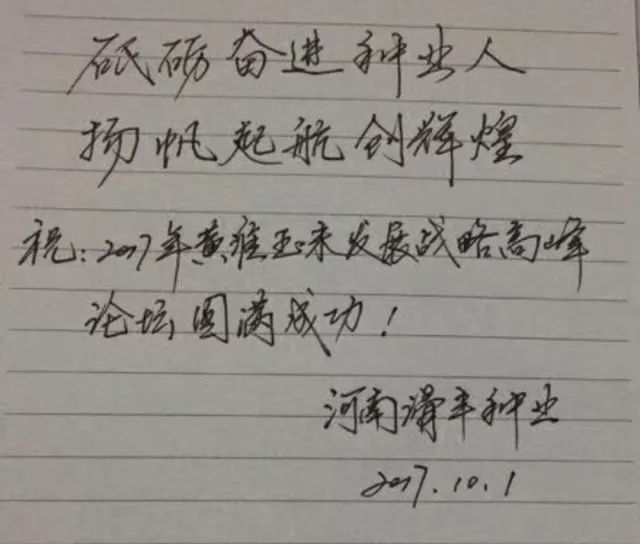 砥砺奋进种业人
扬帆起航创辉煌
祝:2017年黄淮玉米发展战略高峰
论坛圆满成功!
河南滑丰种业
2017.10.1